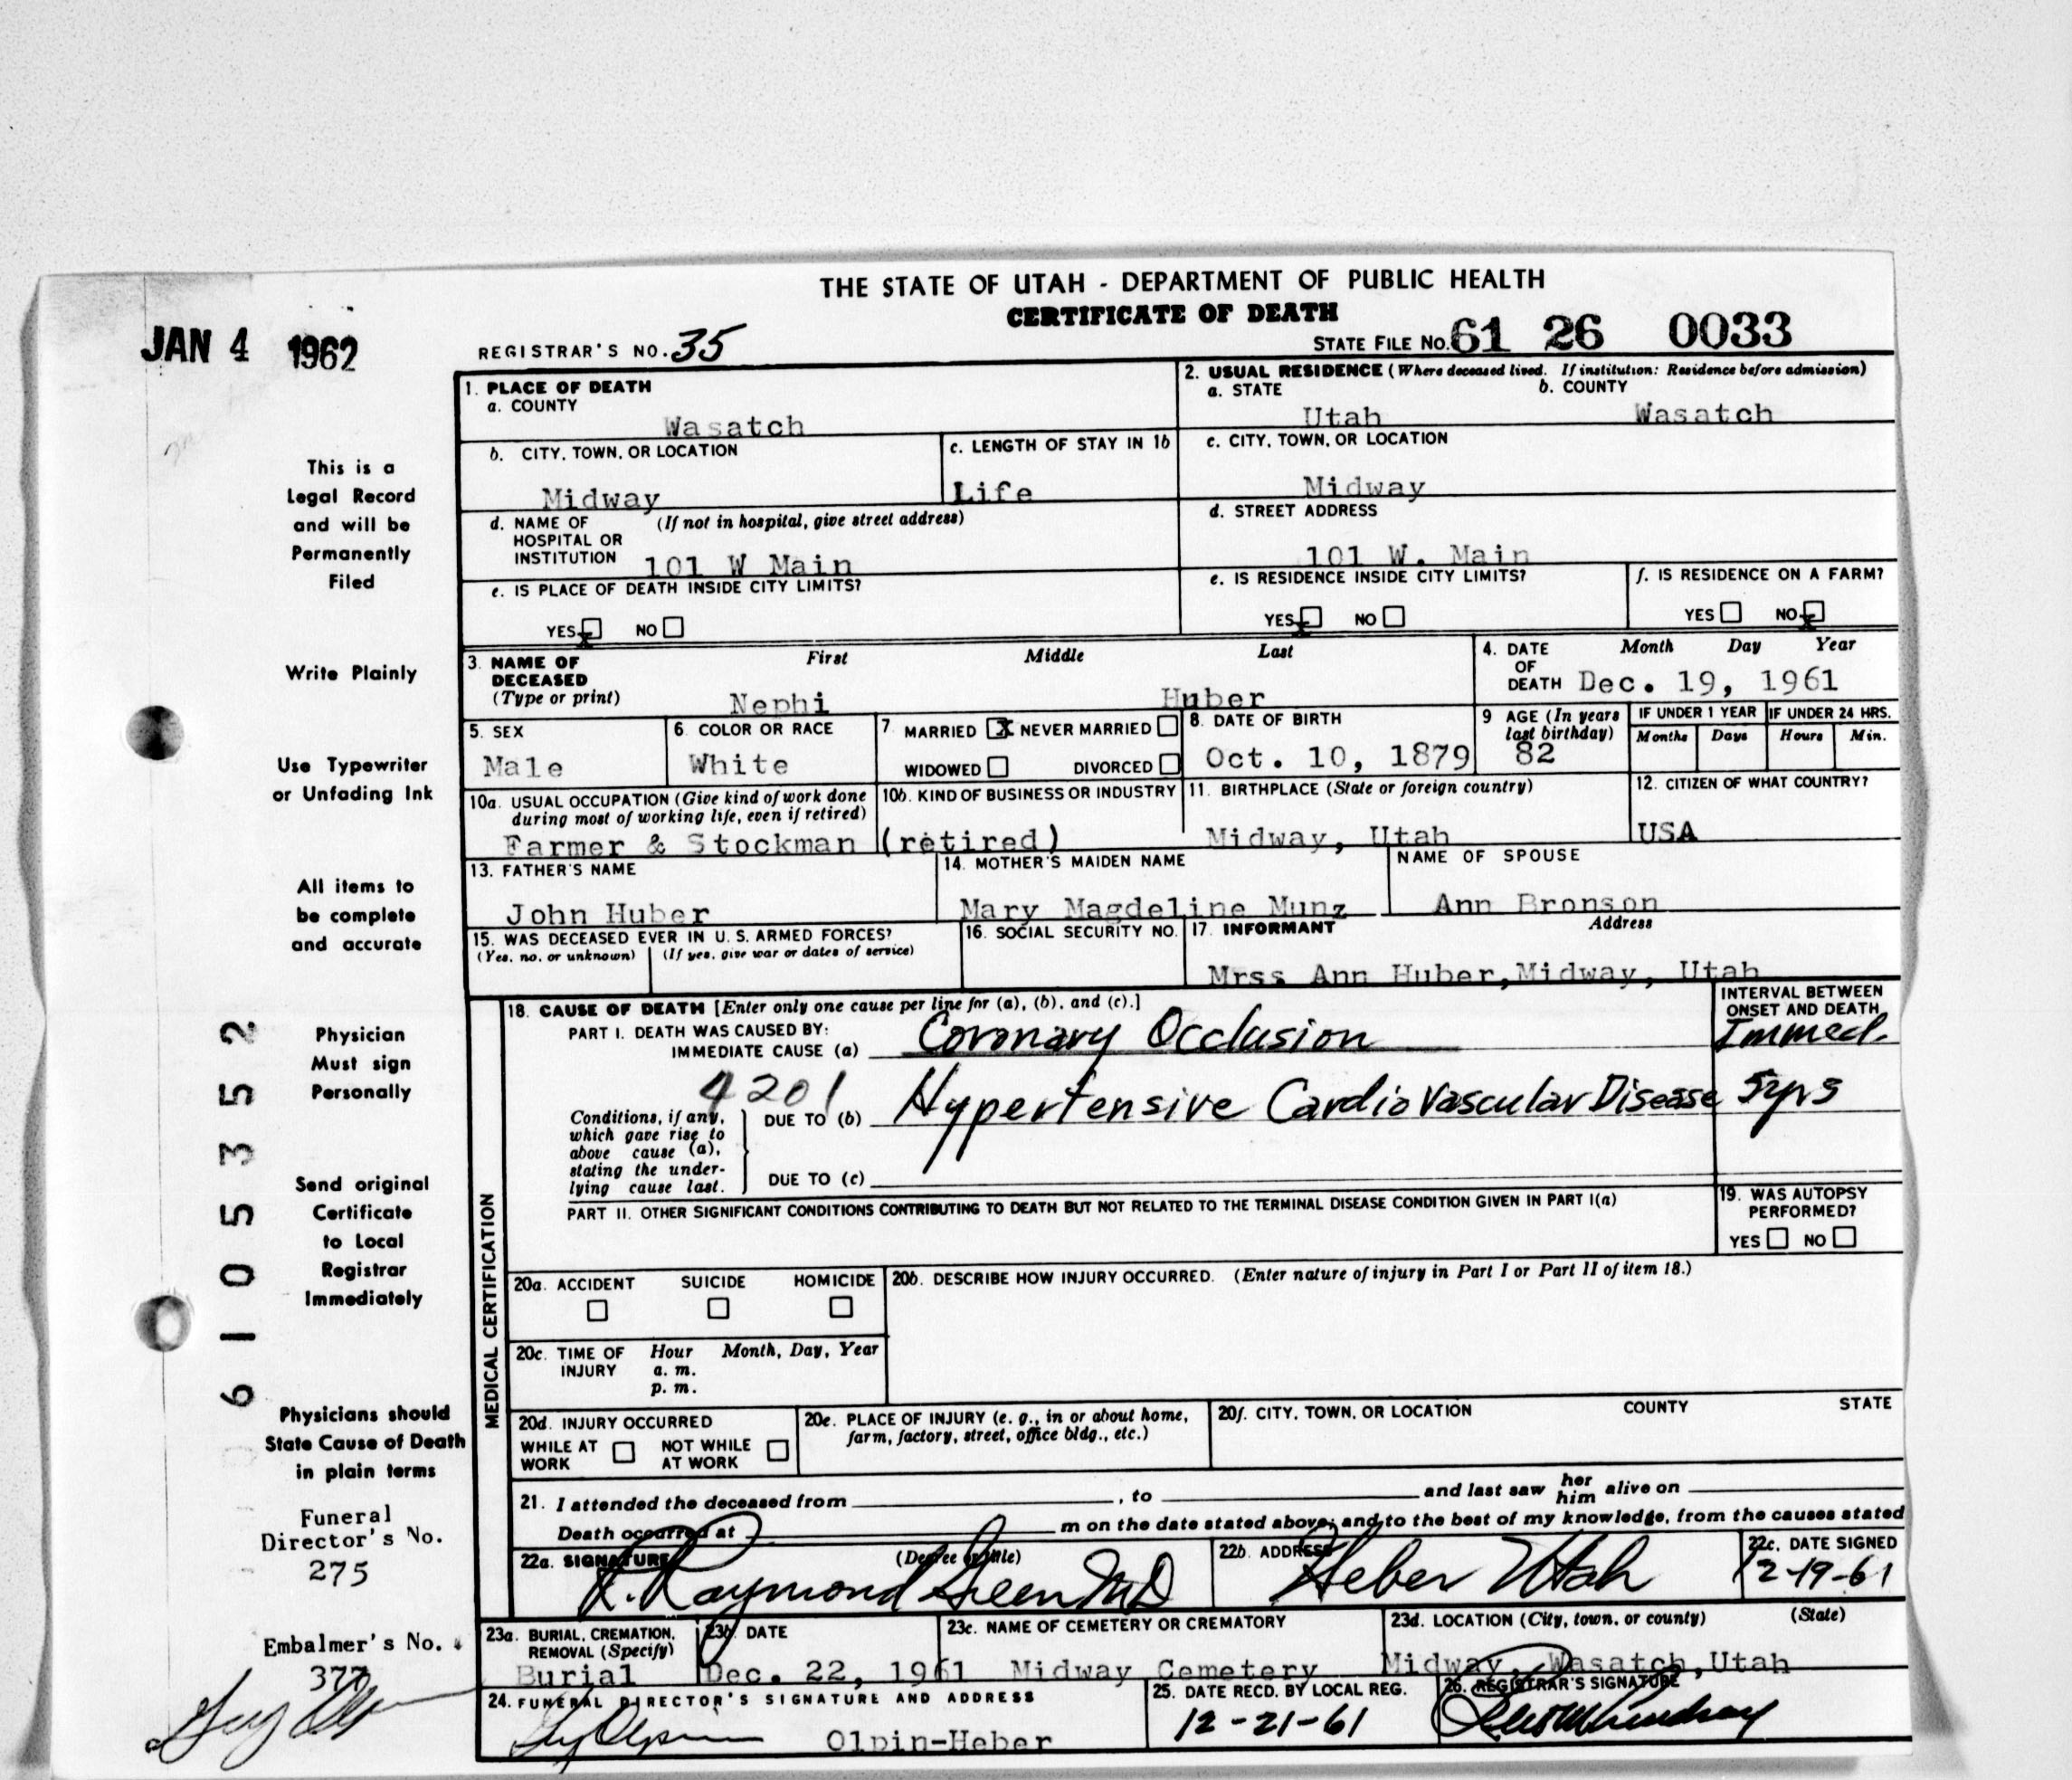 THE STATE OF UTAH - DEPARTMENT OF PUBLIC HEALTH
CERTIFICATE OF DEATH
JAN 4 1962
REGISTRAR'S NO. 35
STATE FILE No. 61 26 0033
1. PLACE OF DEATH
a. COUNTY
Wasatch
2. USUAL RESIDENCE (Where deceased lived. If institution: Residence before admission)
a. STATE b. COUNTY
Utah Wasatch
b. CITY, TOWN, OR LOCATION
Midway
c. LENGTH OF STAY IN 1b
Life
c. CITY, TOWN, OR LOCATION
Midway
d. NAME OF (If not in hospital, give street address)
HOSPITAL OR
INSTITUTION 101 W Main
d. STREET ADDRESS
101 W. Main
e. IS PLACE OF DEATH INSIDE CITY LIMITS?
YES x NO
e. IS RESIDENCE INSIDE CITY LIMITS?
YES x NO
f. IS RESIDENCE ON A FARM?
YES NO x
3. NAME OF First Middle Last
DECEASED
(Type or print) Nephi Huber
4. DATE Month Day Year
OF
DEATH Dec. 19, 1961
5. SEX
Male
6. COLOR OR RACE
White
7. MARRIED X NEVER MARRIED
WIDOWED DIVORCED
8. DATE OF BIRTH
Oct. 10, 1879
9 AGE (In years
last birthday)
82
IF UNDER 1 YEAR
Months Days
IF UNDER 24 HRS.
Hours Min.
10a. USUAL OCCUPATION (Give kind of work done
during most of working life, even if retired)
Farmer & Stockman
10b. KIND OF BUSINESS OR INDUSTRY
(retired)
11. BIRTHPLACE (State or foreign country)
Midway, Utah
12. CITIZEN OF WHAT COUNTRY?
USA
13. FATHER'S NAME
John Huber
14. MOTHER'S MAIDEN NAME
Mary Magdeline Munz
NAME OF SPOUSE
Ann Bronson
15. WAS DECEASED EVER IN U. S. ARMED FORCES?
(Yes, no, or unknown) (If yes, give war or dates of service)
16. SOCIAL SECURITY NO.
17. INFORMANT Address
Mrss Ann Huber,Midway, Utah
MEDICAL CERTIFICATION
18. CAUSE OF DEATH [Enter only one cause per line for (a), (b), and (c).]
PART I. DEATH WAS CAUSED BY:
IMMEDIATE CAUSE (a) Coronary Occlusion
INTERVAL BETWEEN
ONSET AND DEATH
Immed.
4201
Conditions, if any,
which gave rise to
above cause (a),
stating the under-
lying cause last.
DUE TO (b) Hypertensive CardioVascular Disease 5yrs
DUE TO (c)
PART II. OTHER SIGNIFICANT CONDITIONS CONTRIBUTING TO DEATH BUT NOT RELATED TO THE TERMINAL DISEASE CONDITION GIVEN IN PART I(a)
19. WAS AUTOPSY
PERFORMED?
YES NO
20a. ACCIDENT SUICIDE HOMICIDE
20b. DESCRIBE HOW INJURY OCCURRED. (Enter nature of injury in Part I or Part II of item 18.)
20c. TIME OF Hour Month, Day, Year
INJURY a. m.
p. m.
20d. INJURY OCCURRED
WHILE AT NOT WHILE
WORK AT WORK
20e. PLACE OF INJURY (e. g., in or about home,
farm, factory, street, office bldg., etc.)
20f. CITY, TOWN, OR LOCATION COUNTY STATE
21. I attended the deceased from , to and last saw her him alive on
Death occurred at m on the date stated above; and to the best of my knowledge, from the causes stated
22a. SIGNATURE (Degree or title)
R. Raymond Green MD
22b. ADDRESS
Heber Utah
22c. DATE SIGNED
12-19-61
23a. BURIAL, CREMATION,
REMOVAL (Specify)
Burial
23b. DATE
Dec. 22, 1961
23c. NAME OF CEMETERY OR CREMATORY
Midway Cemetery
23d. LOCATION (City, town, or county) (State)
Midway, Wasatch,Utah
24. FUNERAL DIRECTOR'S SIGNATURE AND ADDRESS
Olpin-Heber
25. DATE RECD. BY LOCAL REG.
12-21-61
26. REGISTRAR'S SIGNATURE
This is a
Legal Record
and will be
Permanently
Filed
Write Plainly
Use Typewriter
or Unfading Ink
All items to
be complete
and accurate
Physician
Must sign
Personally
Send original
Certificate
to Local
Registrar
Immediately
Physicians should
State Cause of Death
in plain terms
Funeral
Director's No.
275
Embalmer's No.
377
6105352